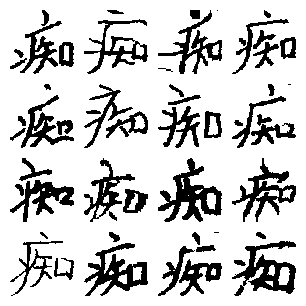 痴痴痴痴
痴痴痴痴
痴痴痴痴
痴痴痴痴